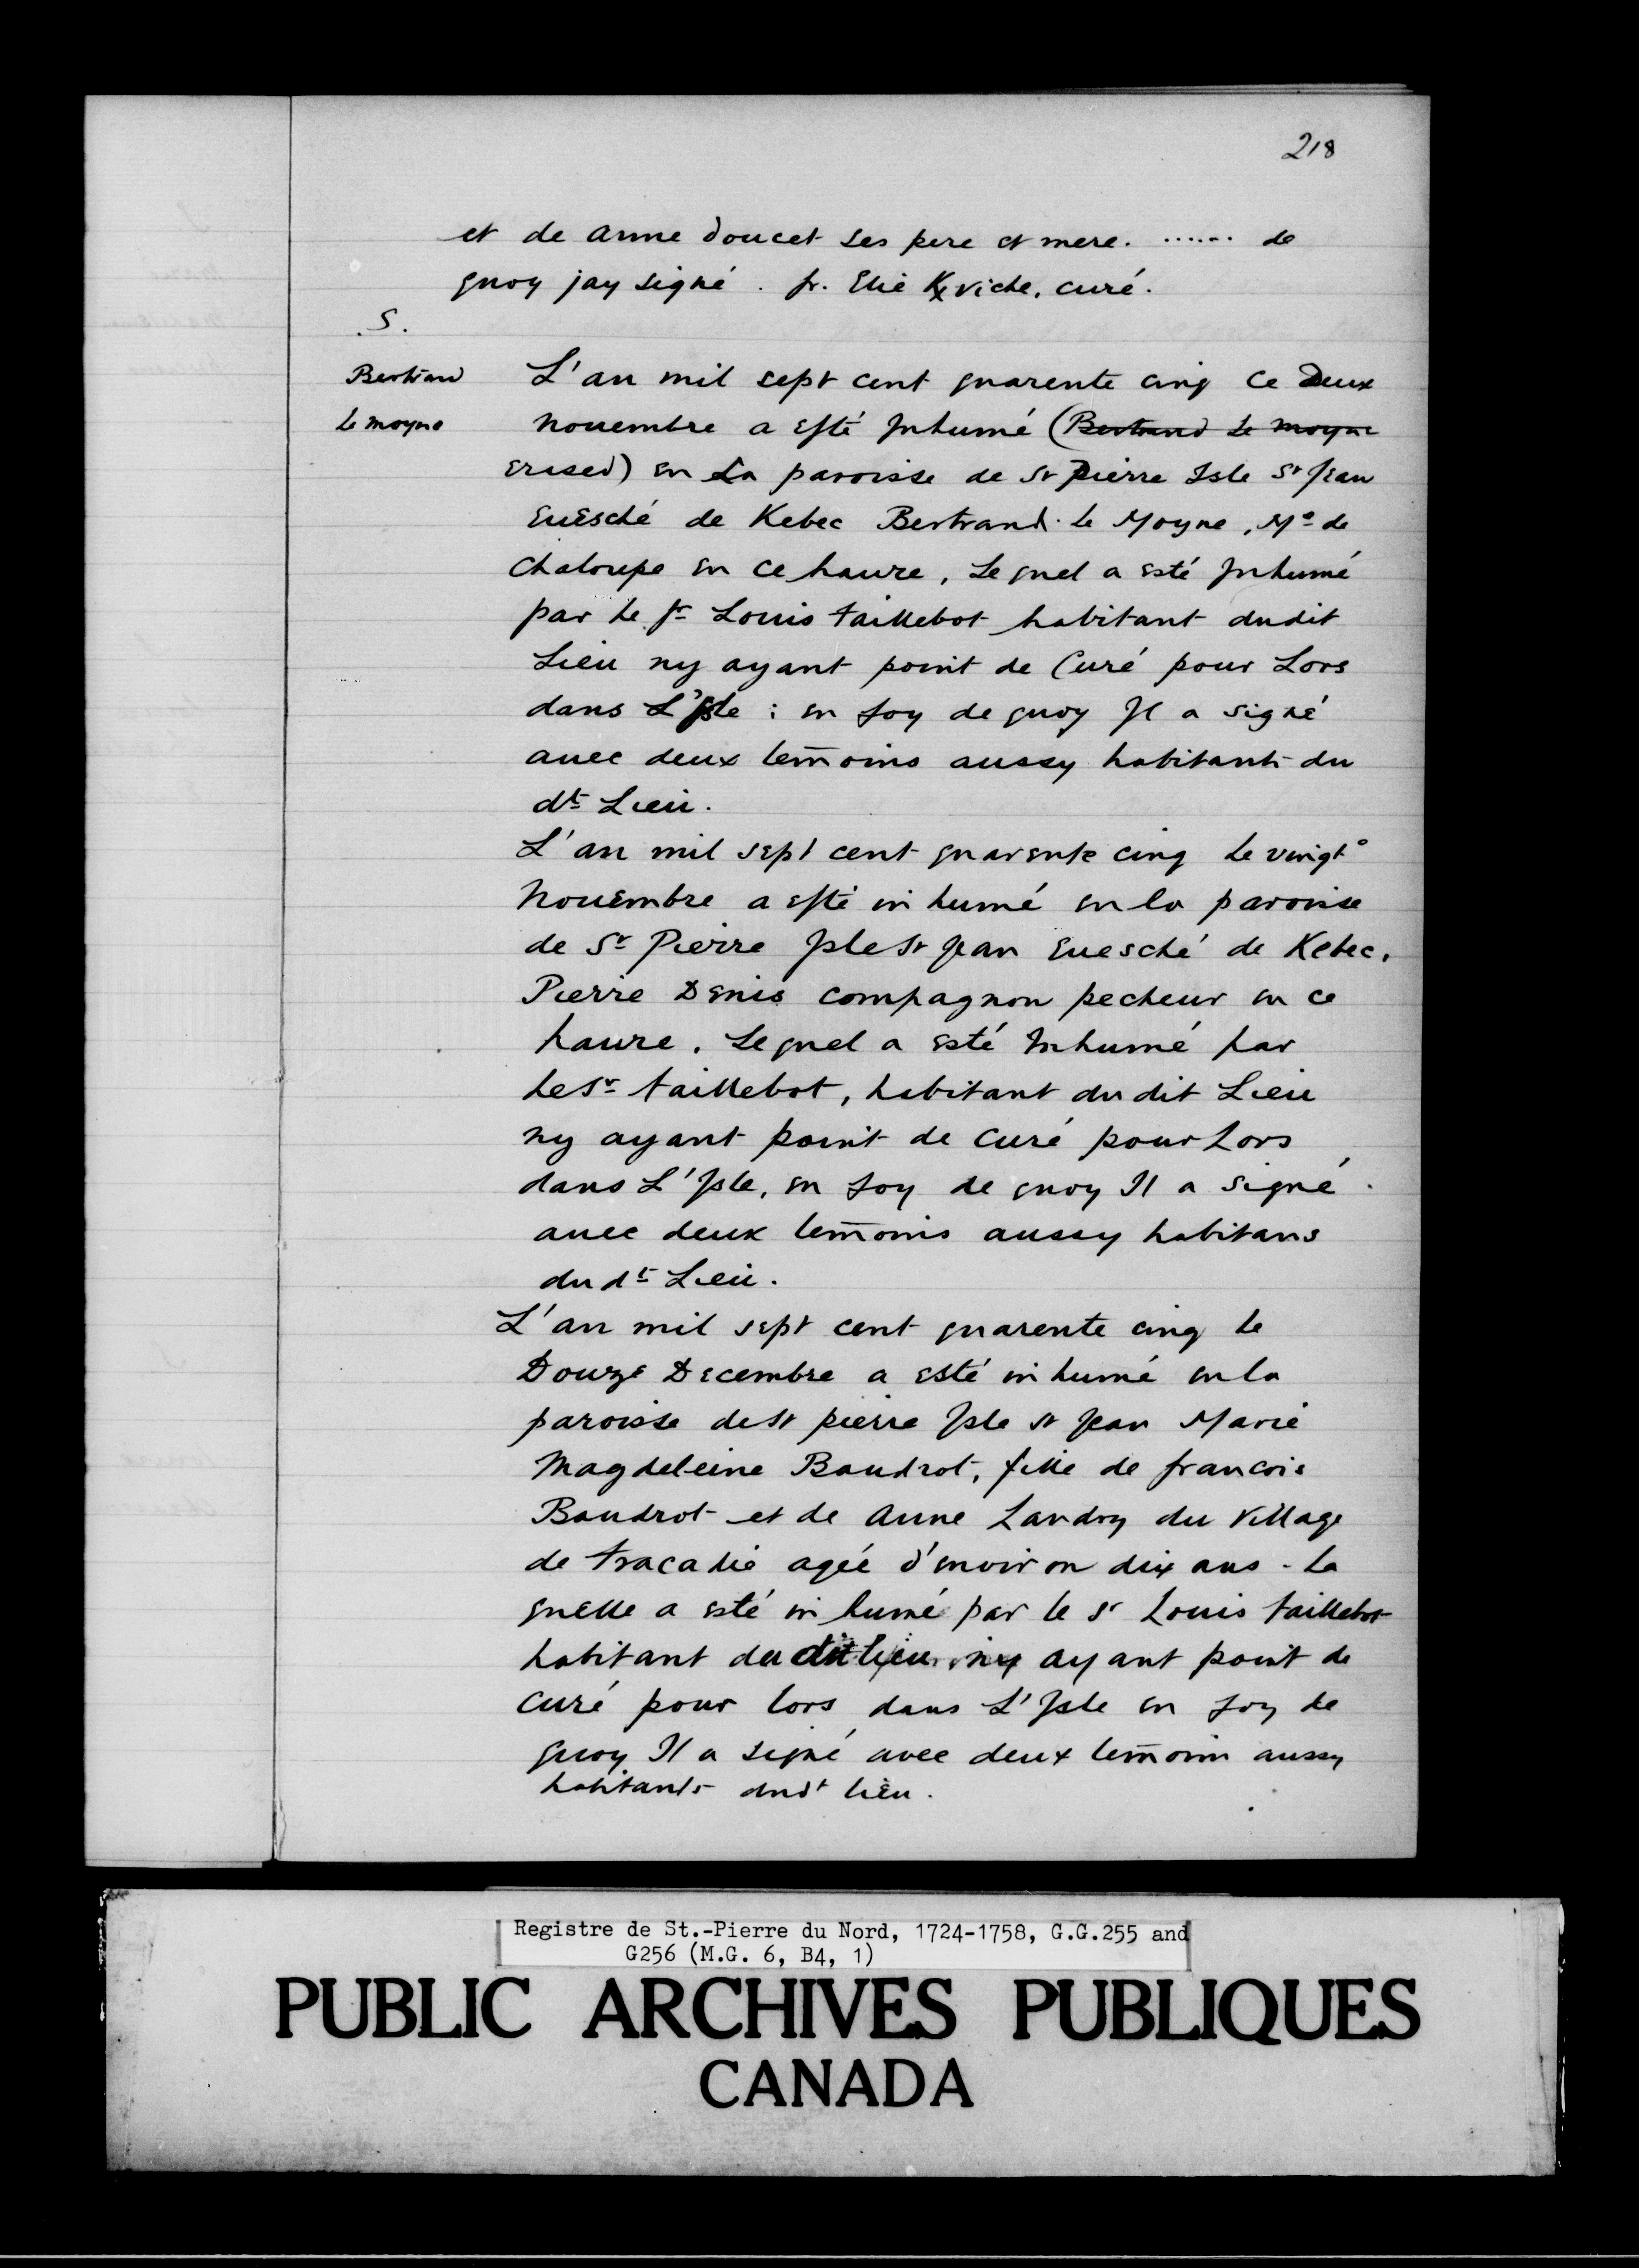 218
et de anne doucet ses pere et mere. ...... de
quoy jay signé. fr. Elie Kxviche, curé.
.S.
Bertrand
Le moyne
L'an mil sept cent quarente cinq ce Deux
nouembre a esté Inhumé (Bertrand Le moyne
erased) en La paroisse de St Pierre Isle St Jean
Euesché de Kebec Bertrand Le Moyne, Me de
Chaloupe en ce haure, Lequel a esté Inhumé
par le Sr Louis taillebot habitant dudit
Lieu ny ayant point de Curé pour Lors
dans L'Isle: en foy de quoy Il a signé
auec deux temoins aussy habitants du
dt Lieu.
L'an mil sept cent quarente cinq Le vingte
Nouembre a esté inhumé en la paroisse
de St Pierre Isle St Jean Euesché de Kebec.
Pierre Denis compagnon pecheur en ce
haure. Lequel a esté Inhumé par
le Sr taillebot, habitant du dit Lieu
ny ayant point de Curé pour Lors
dans L'Isle, en foy de quoy Il a signé.
auec deux temoins aussy habitans
du dt Lieu.
L'an mil sept cent quarente cinq Le
Douze Decembre a esté inhumé en la
paroisse de St pierre Isle St Jean Marie
Magdeleine Boudrot, fille de francois
Boudrot et de Anne Landry du Village
de tracadie agée d'environ dix ans. La
quelle a esté inhumé par le Sr Louis taillebot
habitant du dit lieu, ny ayant point de
curé pour lors dans L'Isle en foy de
quoy Il a signé avec deux temoin aussy
habitants dudt lieu.
Registre de St.-Pierre du Nord, 1724-1758, G.G.255 and
G256 (M.G. 6, B4, 1)
PUBLIC ARCHIVES PUBLIQUES
CANADA